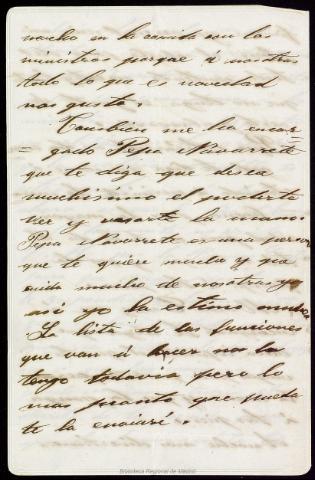 mucho en la comida con las
ministras porque á nosotras
todo lo que es novedad
nos gusta.
Tambien me ha encar
= gado Pepa Navarrete
que te diga que desea
muchisimo el poderte
ver y besarte la mano.
Pepa Navarrete es una perso
que te quiere mucho y que
cuida mucho de nosotras y
asi yo la estimo mucho.
La lista de las funciones
que van á hacer no la
tengo todavia pero lo
mas pronto que pueda
te la enviaré.
Biblioteca Regional de Madrid